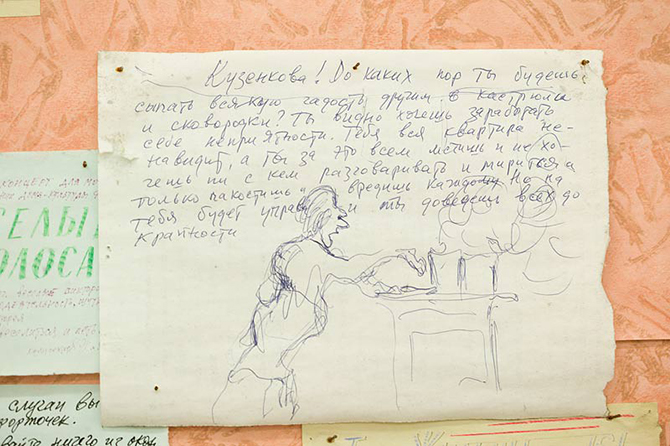 Кузенкова! До каких пор ты будешь
сыпать всякую гадость другим в кастрюли
и сковородки? Ты видно хочешь заработать
себе неприятности. Тебя вся квартира не-
навидит, а ты за это всем мстишь и не хо-
чешь ни с кем разговаривать и мириться, а
только пакостишь и вредишь каждому. Но на
тебя будет управа и ты доведешь всех до
крайности
КОНЦЕРТ ДЛЯ
СЕЛЫ
ОЛОСА
случаи вы
форточек.